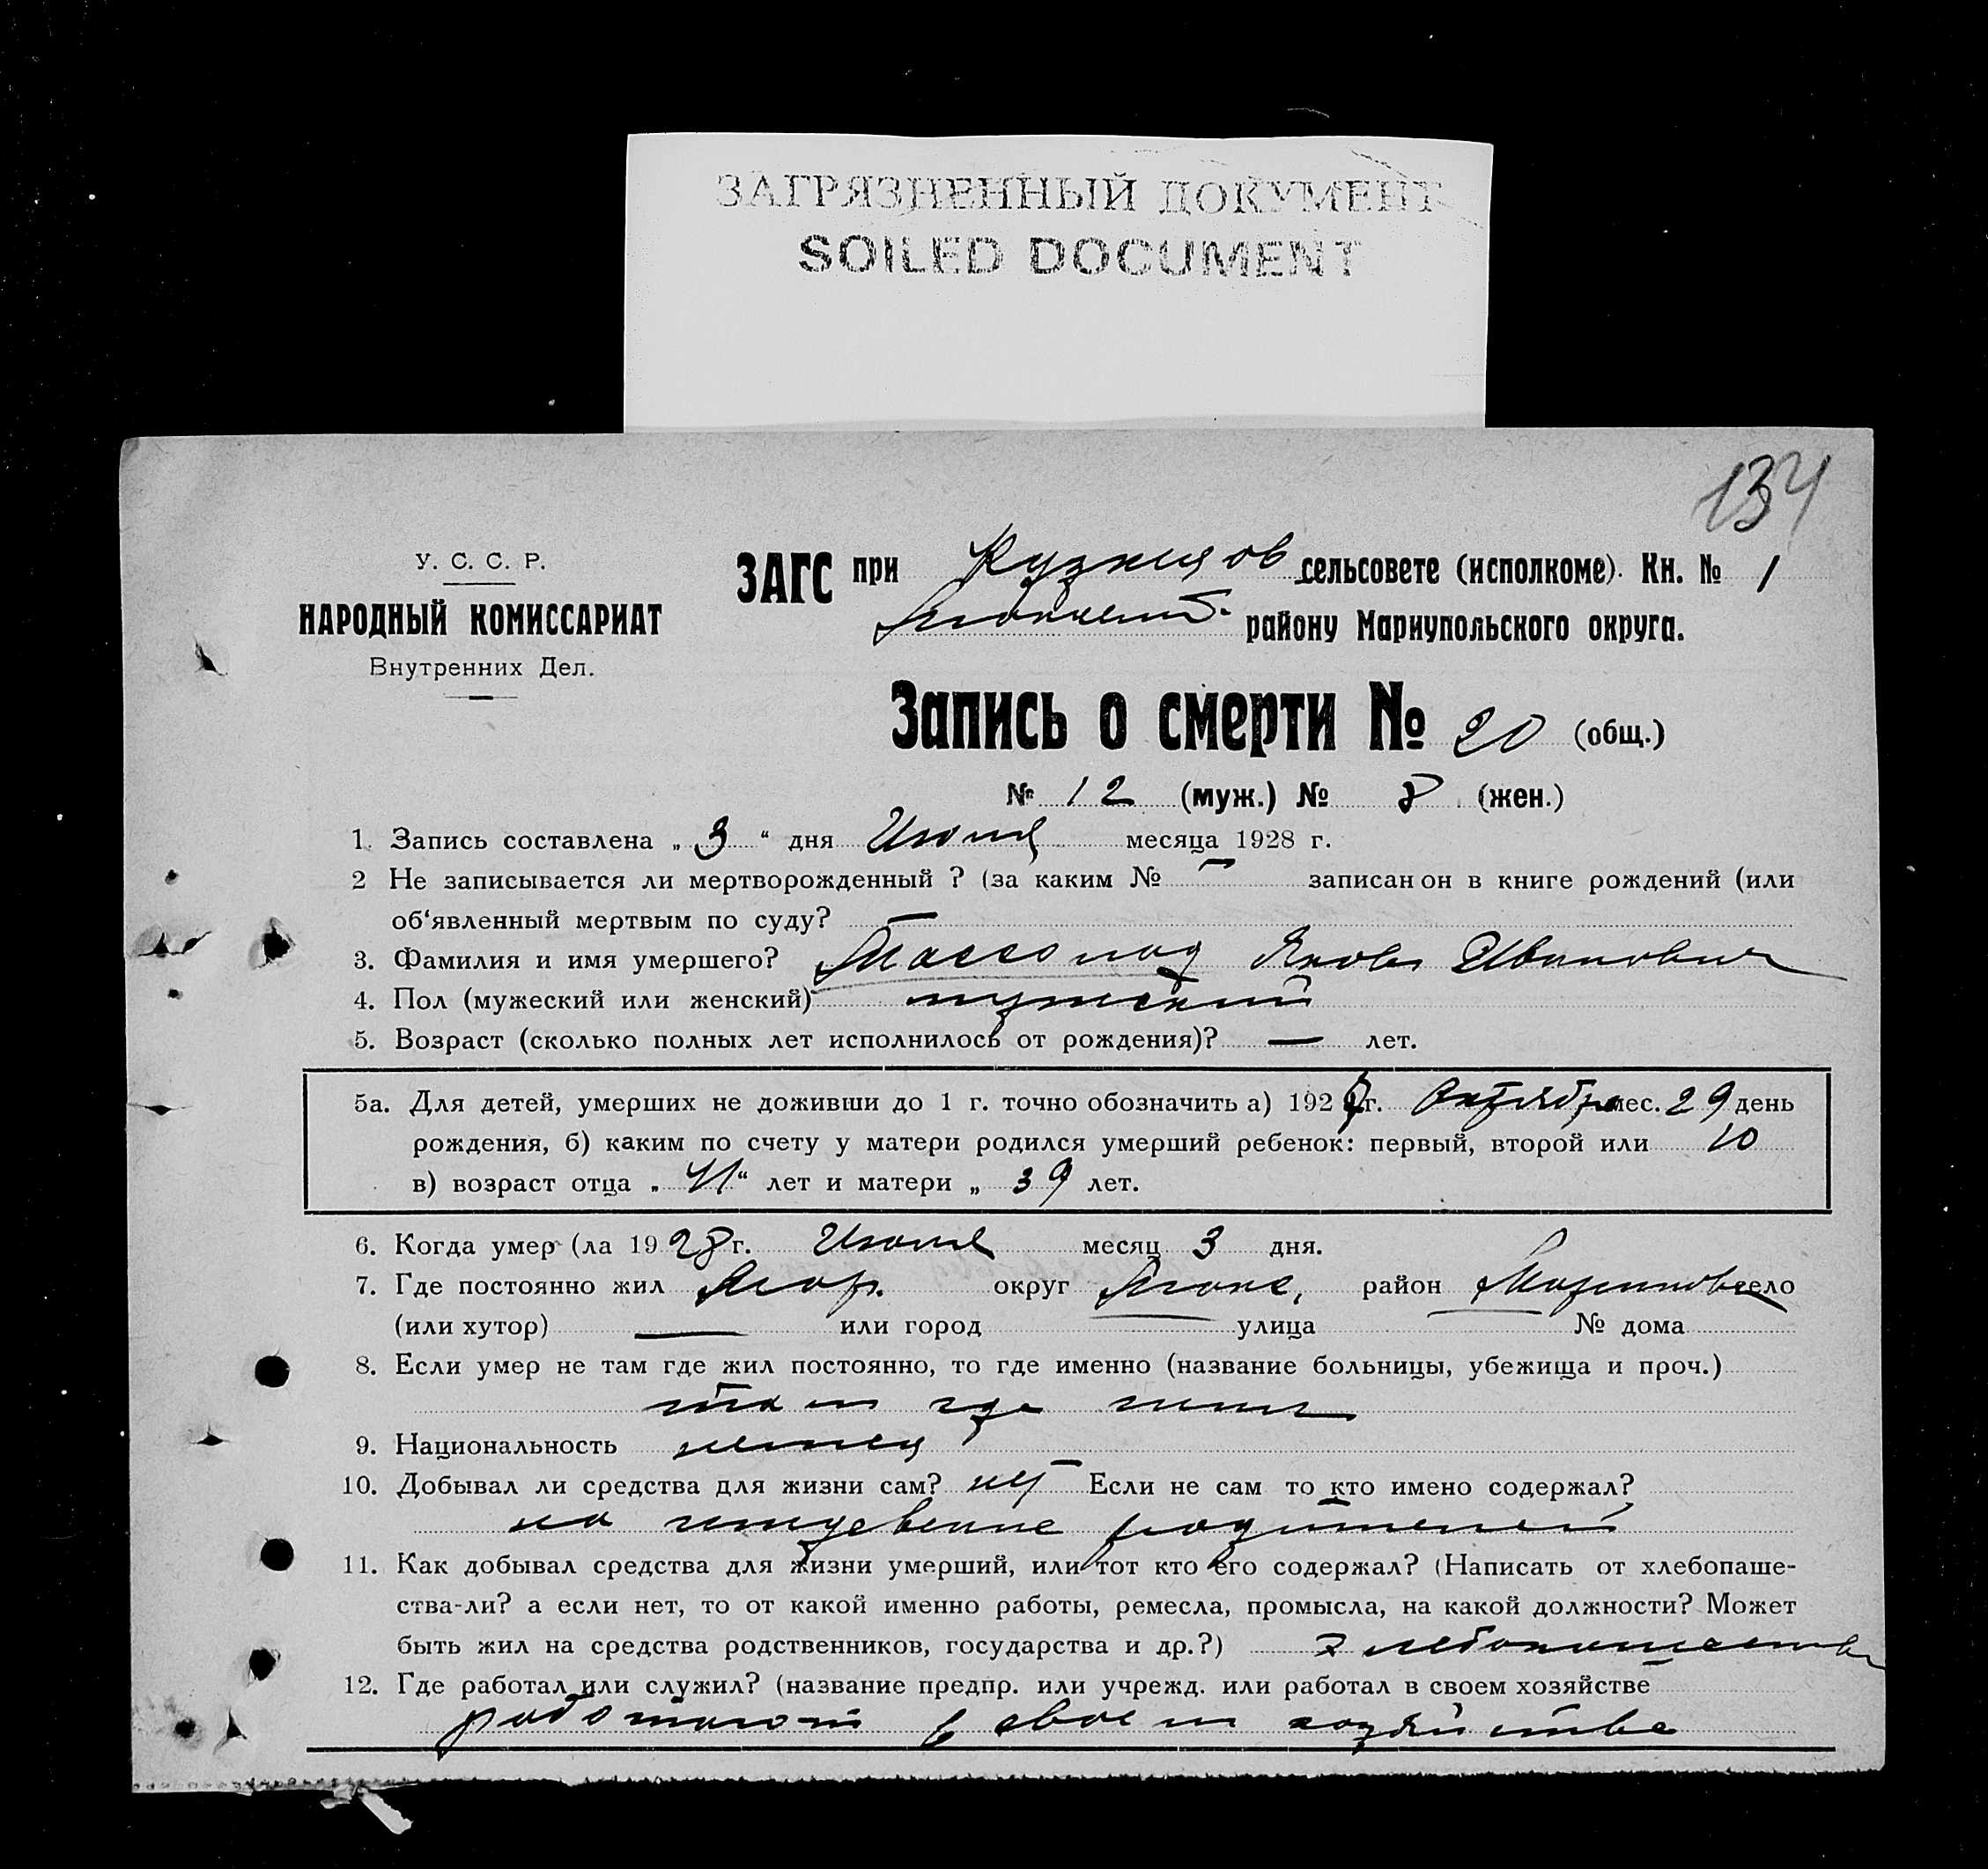 ЗАГРЯЗНЕННЫЙ ДОКУМЕНТ
SOILED DOCUMENT
134
У. С. С. Р.
НАРОДНЫЙ КОМИССАРИАТ
Внутренних Дел.
ЗАГС при Кузнецов сельсовете (исполкоме). Кн. № 1
району Мариупольского округа.
Запись о смерти № 20 (общ.)
№ 12 (муж.) № 8 (жен.)
1. Запись составлена „ 3 “ дня месяца 1928 г.
2 Не записывается ли мертворожденный ? (за каким № — записан он в книге рождений (или
об‘явленный мертвым по суду? —
3. Фамилия и имя умершего? Яков Иванович
4. Пол (мужеский или женский) мужский
5. Возраст (сколько полных лет исполнилось от рождения)? — лет.
5а. Для детей, умерших не доживши до 1 г. точно обозначить а) 1927 г. Октября мес. 29 день
рождения, б) каким по счету у матери родился умерший ребенок: первый, второй или 10
в) возраст отца „ 41 “ лет и матери „ 39 лет.
6. Когда умер (ла 1928 г. месяц 3 дня.
7. Где постоянно жил округ район село
(или хутор) — или город улица № дома
8. Если умер не там где жил постоянно, то где именно (название больницы, убежища и проч.)
там где жил
9. Национальность немец
10. Добывал ли средства для жизни сам? нет Если не сам то кто имено содержал?
на иждевение родителей
11. Как добывал средства для жизни умерший, или тот кто его содержал? (Написать от хлебопаше-
ства-ли? а если нет, то от какой именно работы, ремесла, промысла, на какой должности? Может
быть жил на средства родственников, государства и др.?) хлебопашество
12. Где работал или служил? (название предпр. или учрежд. или работал в своем хозяйстве
работают в своем хозяйстве